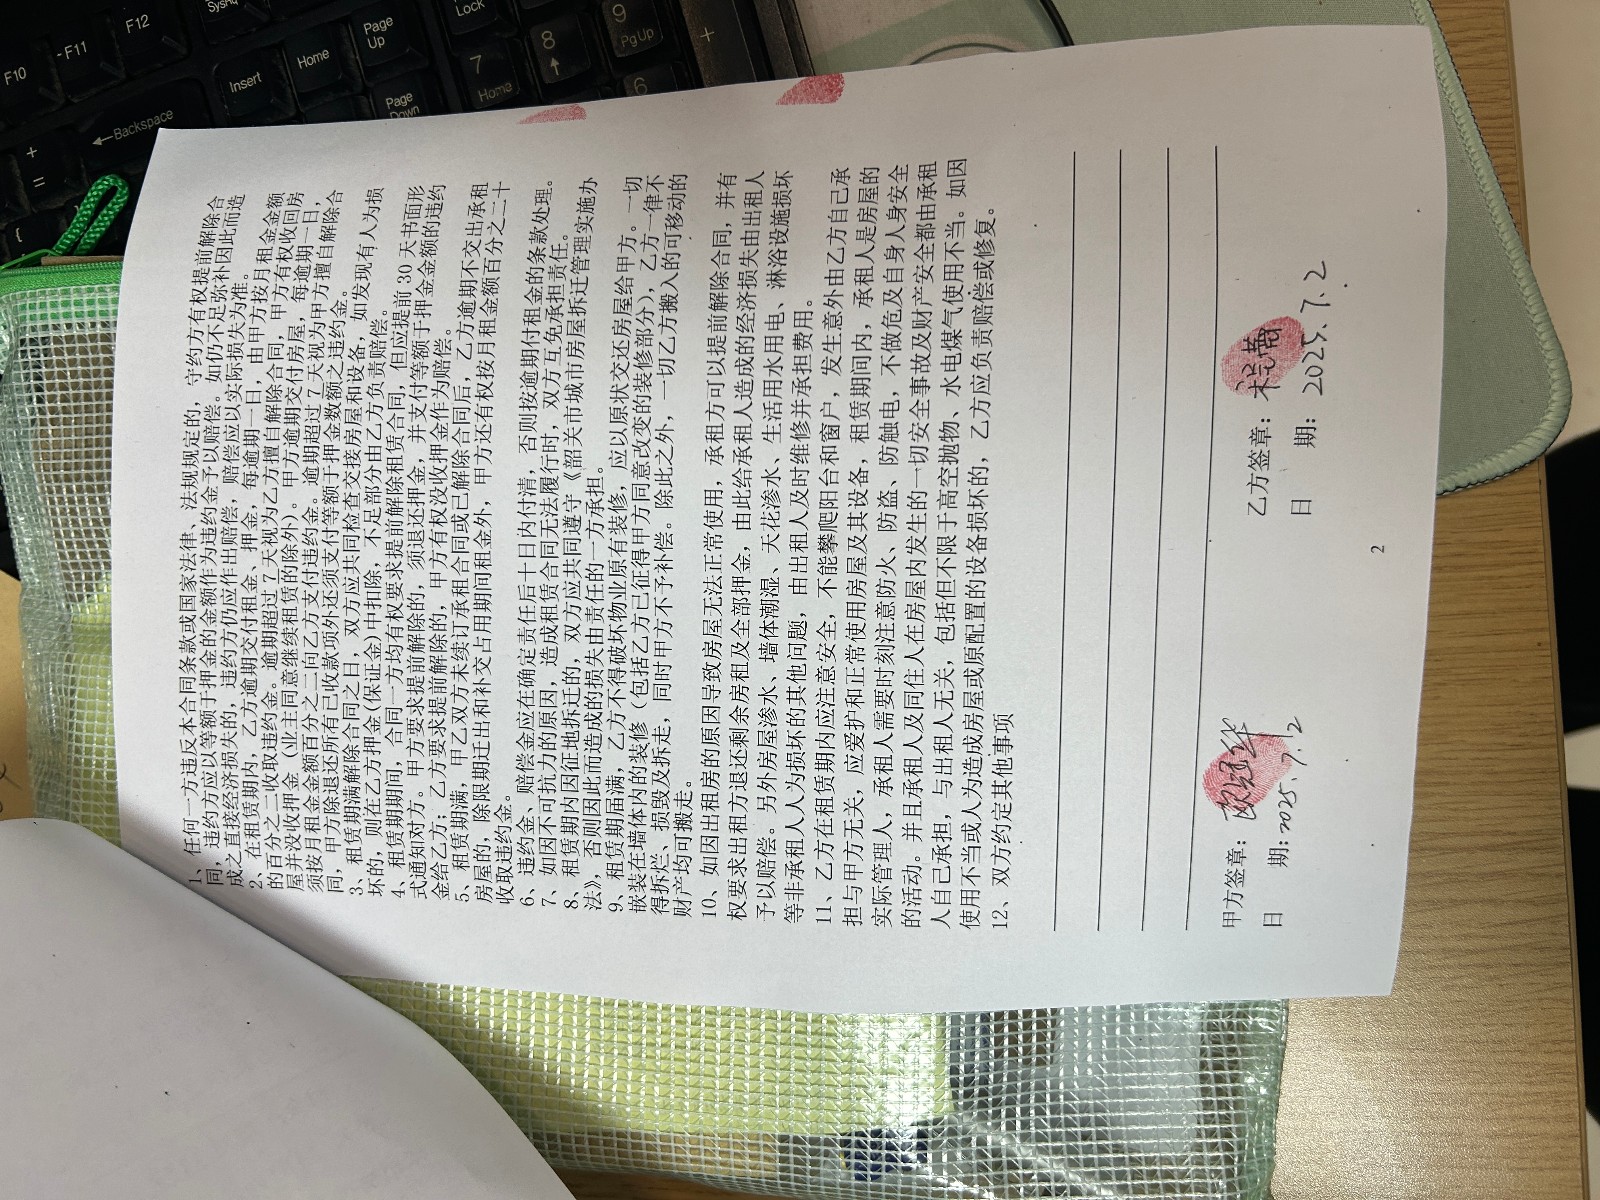 1、任何一方违反本合同条款或国家法律、法规规定的，守约方有权提前解除合
同，违约方应以等额于押金的金额作为违约金予以赔偿。如仍不足弥补因此而造
成之直接经济损失的，违约方仍应作出赔偿，赔偿应以实际损失为准。
2、在租赁期内，乙方逾期交付租金、押金，每逾期一日，由甲方按月租金金额
的百分之二收取违约金。逾期超过 7 天视为乙方擅自解除合同，甲方有权收回房
屋并没收押金（业主同意继续租赁的除外）。甲方逾期交付房屋，每逾期一日，
须按月租金金额百分之二向乙方支付违约金。逾期超过 7 天视为甲方擅自解除合
同，甲方除退还所有已收款项外还须支付等额于押金数额之违约金。
3、租赁期满解除合同之日，双方应共同检查交接房屋和设备，如发现有人为损
坏的，则在乙方押金(保证金)中扣除，不足部分由乙方负责赔偿。
4、租赁期期间，合同一方均有权要求提前解除租赁合同，但应提前 30 天书面形
式通知对方。甲方要求提前解除的，须退还押金，并支付等额于押金金额的违约
金给乙方；乙方要求提前解除的，甲方有权没收押金作为赔偿。
5、租赁期满，甲乙双方未续订承租合同或已解除合同后，乙方逾期不交出承租
房屋的，除限期迁出和补交占用期间租金外，甲方还有权按月租金额百分之二十
收取违约金。
6、违约金、赔偿金应在确定责任后十日内付清，否则按逾期付租金的条款处理。
7、如因不可抗力的原因，造成租赁合同无法履行时，双方互免承担责任。
8、租赁期内因征地拆迁的，双方应共同遵守《韶关市城市房屋拆迁管理实施办
法》，否则因此而造成的损失由责任的一方承担。
9、租赁期届满，乙方不得破坏物业原有装修，应以原状交还房屋给甲方。一切
嵌装在墙体内的装修（包括乙方已征得甲方同意改变的装修部分），乙方一律不
得拆烂、损毁及拆走，同时甲方不予补偿。除此之外，一切乙方搬入的可移动的
财产均可搬走。
10、如因出租房的原因导致房屋无法正常使用，承租方可以提前解除合同，并有
权要求出租方退还剩余房租及全部押金，由此给承租人造成的经济损失由出租人
予以赔偿。另外房屋渗水、墙体潮湿、天花渗水、生活用水用电、淋浴设施损坏
等非承租人人为损坏的其他问题，由出租人及时维修并承担费用。
11、乙方在租赁期内应注意安全，不能攀爬阳台和窗户，发生意外由乙方自己承
担与甲方无关，应爱护和正常使用房屋及其设备，租赁期间内，承租人是房屋的
实际管理人，承租人需要时刻注意防火、防盗、防触电，不做危及自身人身安全
的活动。并且承租人及同住人在房屋内发生的一切安全事故及财产安全都由承租
人自己承担，与出租人无关，包括但不限于高空抛物、水电煤气使用不当。如因
使用不当或人为造成房屋或原配置的设备损坏的，乙方应负责赔偿或修复。
12、双方约定其他事项
甲方签章： 乙方签章：
日 期：2025.7.2 日 期：2025.7.2
2
F10
F11
F12
Backspace
Insert
Home
Page Up
Page Down
Lock
7
Home
8
9
PgUp
6
+
+
=
{